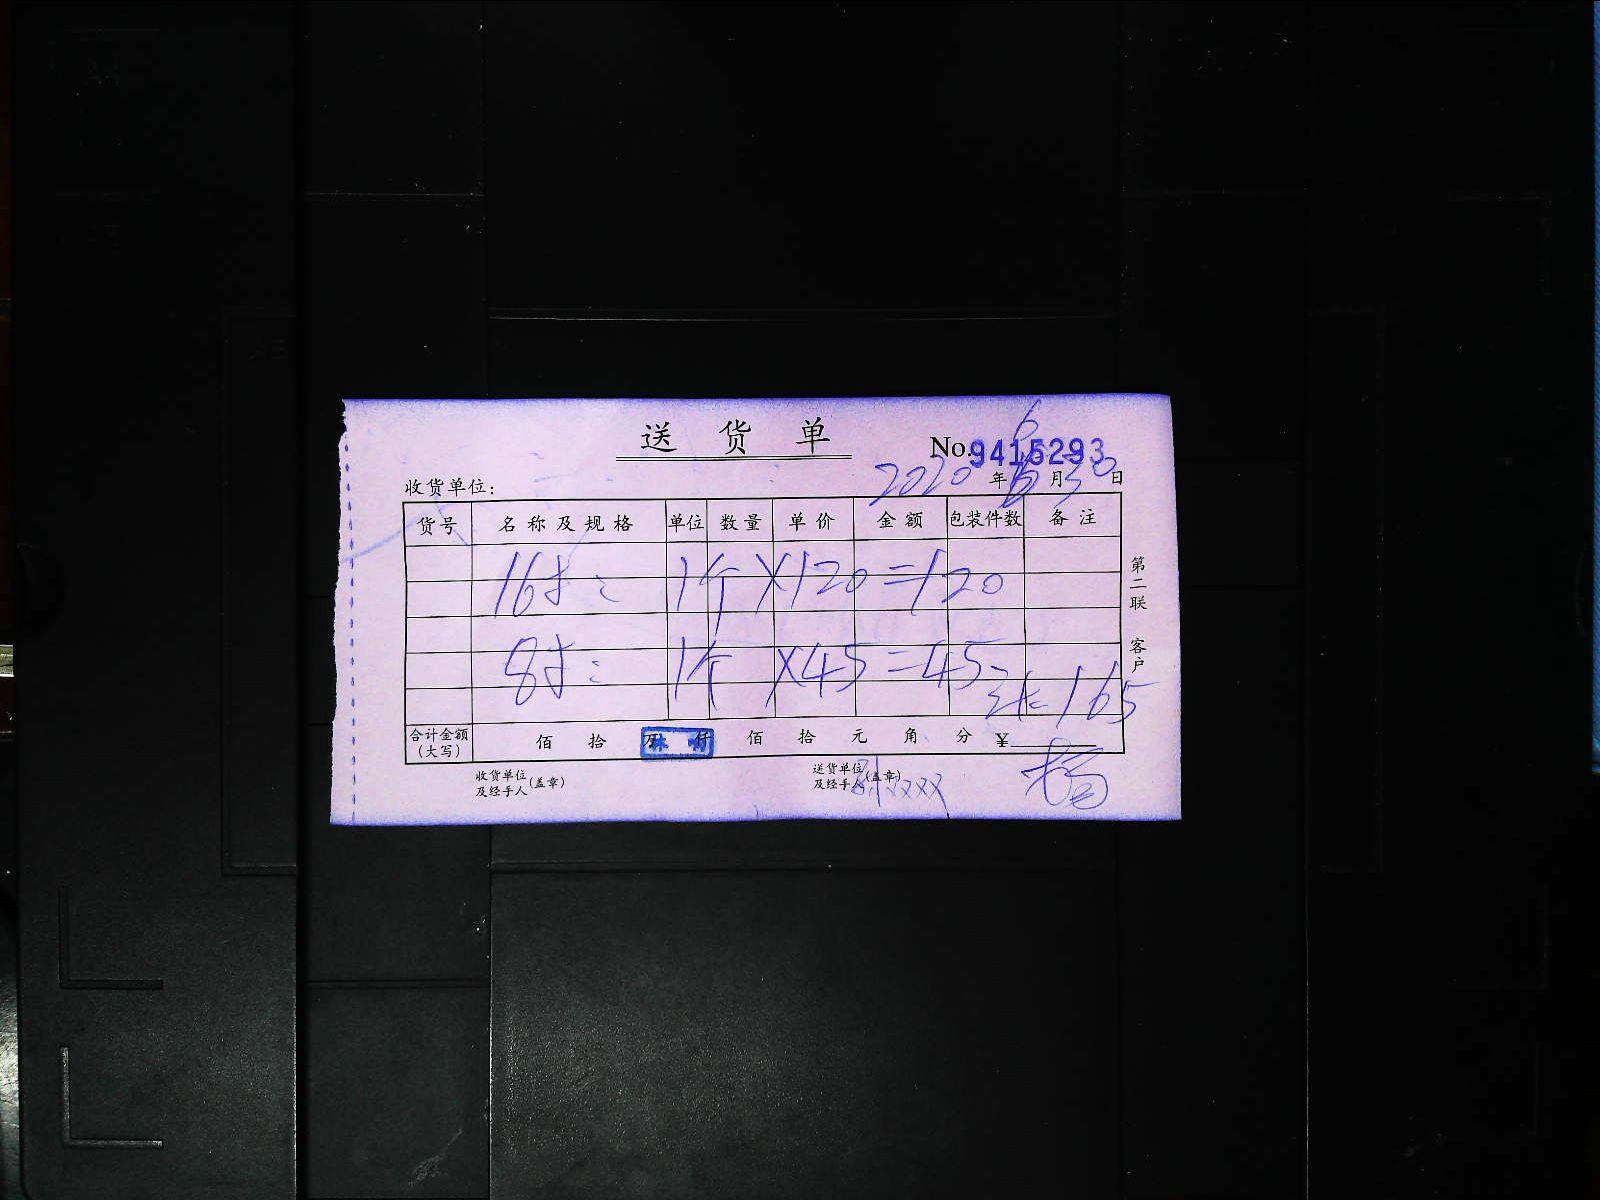 送货单
No.9415293
收货单位:
2020年6月30日
货号 名称及规格 单位 数量 单价 金额 包装件数 备注
16寸: 1个 ×120=120
8寸: 1个 ×45=45
165
合计金额(大写) 佰 拾 万 仟 佰 拾 元 角 分 ¥
收货单位及经手人(盖章)
送货单位及经手人(盖章)
第二联 客户